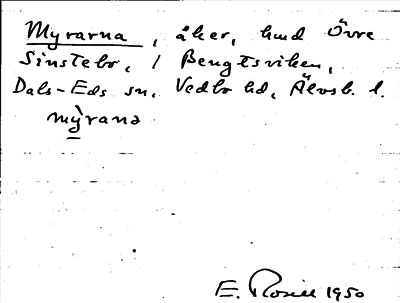 Myrarna, åker, hmd Övre
Sinstebo, 1 Bengtsviken,
Dals-Eds sn, Vedbo hd, Älvsb. l.
mỳrana
E. Rosell 1950